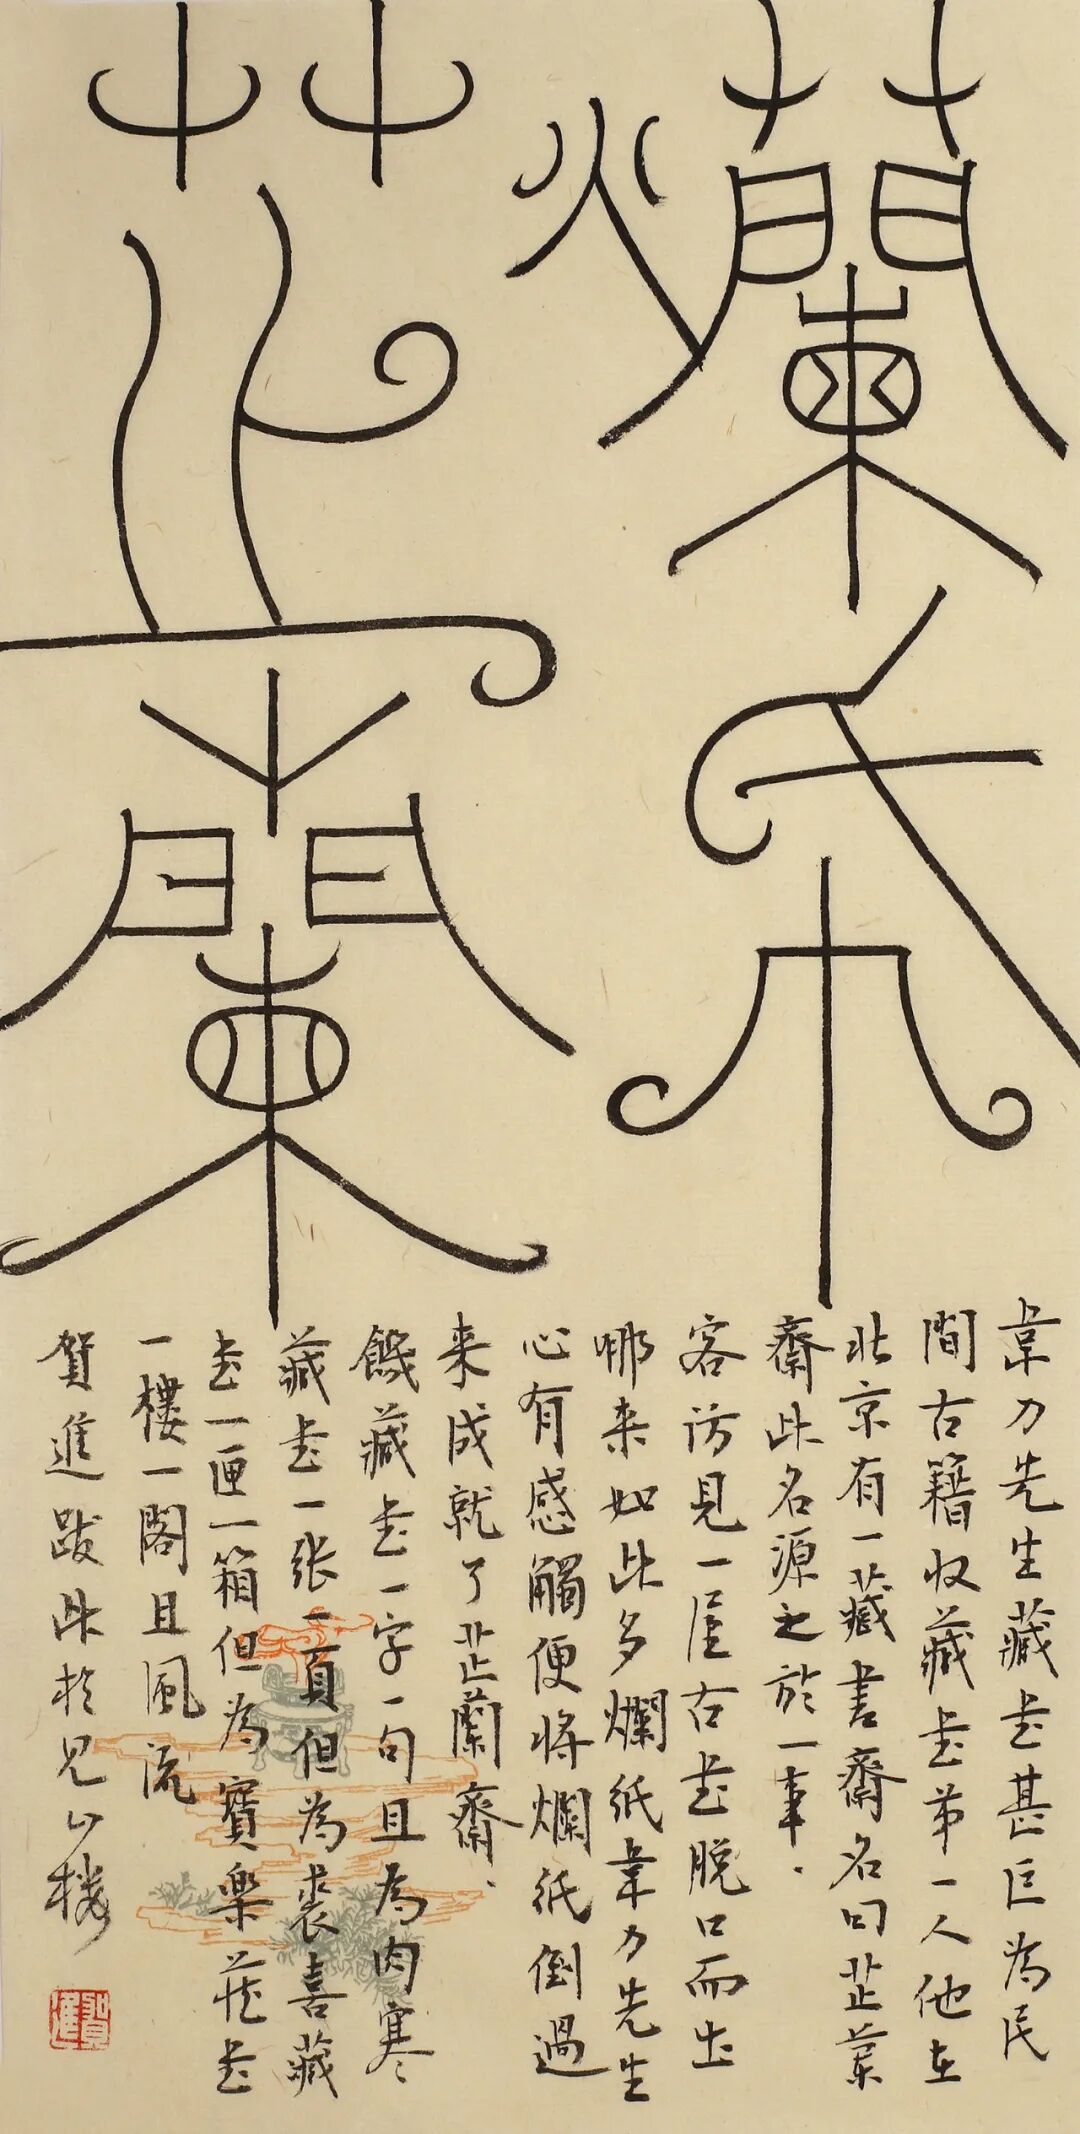 爛帋
芷蘭
韋力先生藏書甚巨為民
間古籍收藏書第一人他在
北京有一藏書齋名曰芷蘭
齋此名源之於一事、
客訪見一屋古書脫口而出
哪来如此多爛紙韋力先生
心有感觸便将爛紙倒過
来成就了芷蘭齋、
饑藏書一字一句且為肉寒
藏書一张一頁但為裘喜藏
書一匣一箱但為寶樂藏書
一樓一閣且風流
賀進跋此於見山樓
賀進